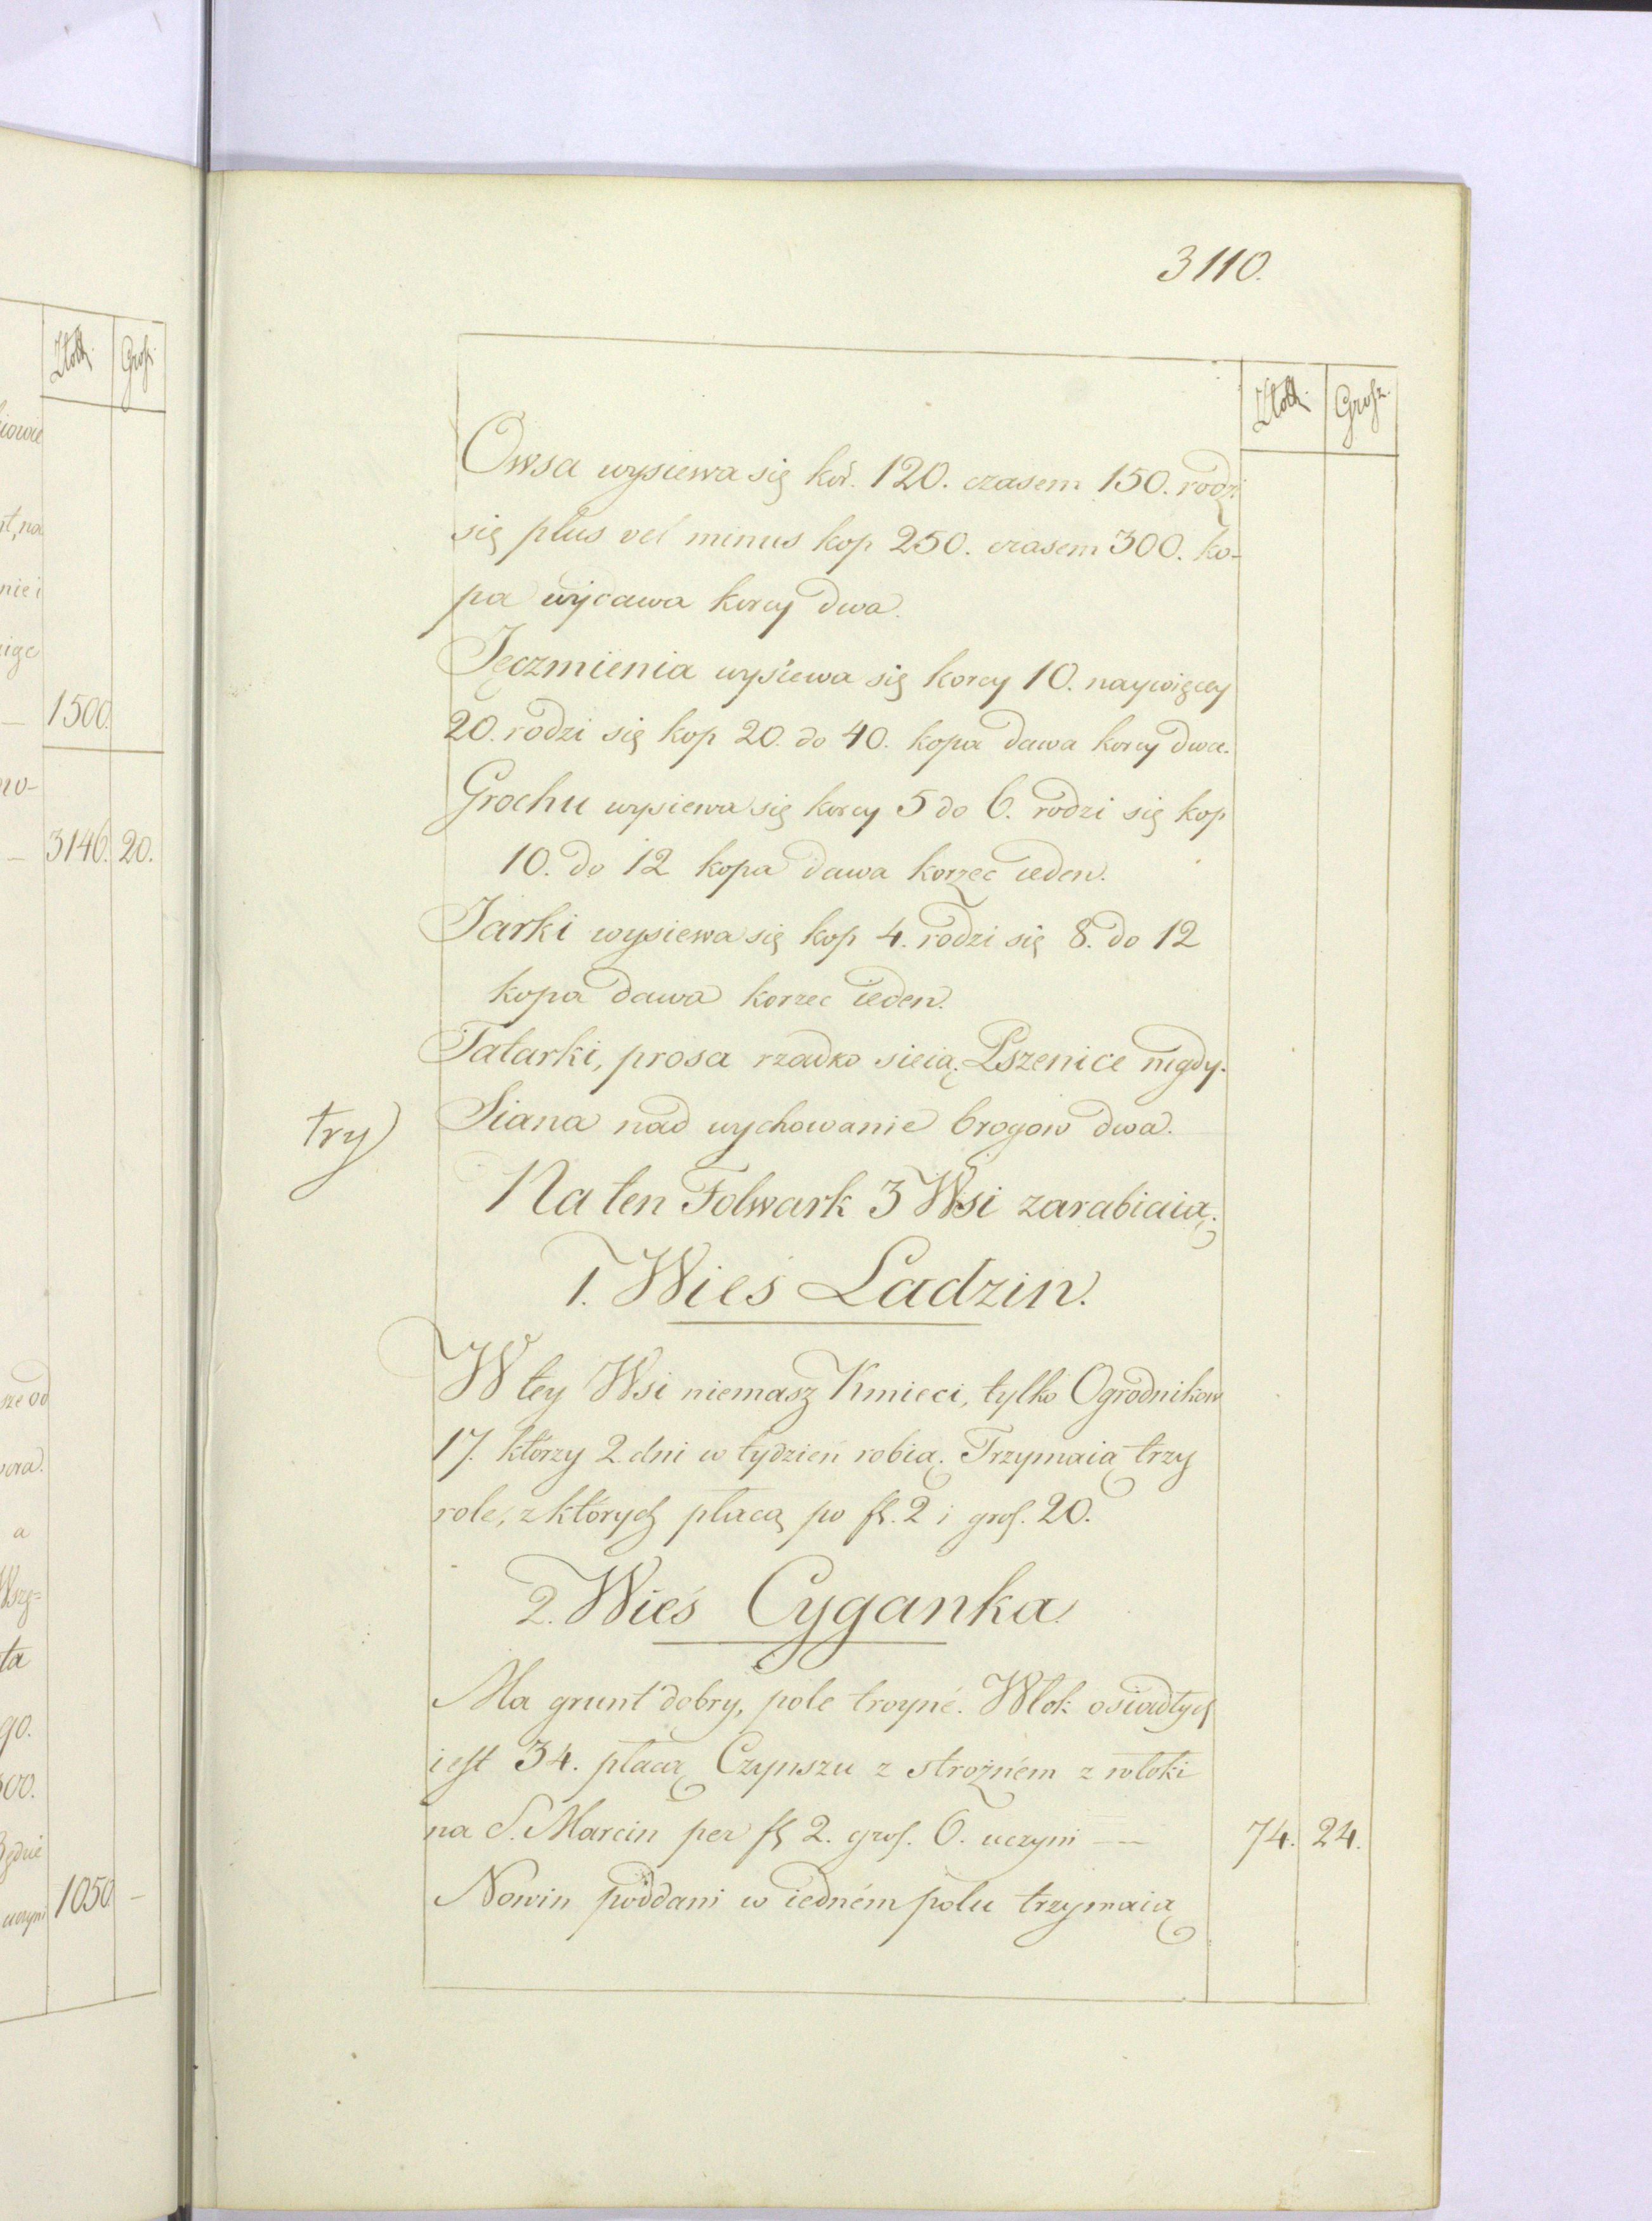 3110.
Złott. Grosz.
Owsa wysiewa się kor. 120. czasem 150. rodzi
się plus vel minus kop 250. czasem 300. ko-
pa wydawa korcy dwa.
Jęczmienia wysiewa się korcy 10. naywięcey
20. rodzi się kop 20. do 40. kopa dawa korcy dwa.
Grochu wysiewa się korcy 5 do 6. rodzi się kop
10. do 12 kopa dawa korzec ieden.
Jarki wysiewa się kop 4. rodzi się 8. do 12
kopa dawa korzec ieden.
Tatarki, prosa rzadko sieią. Pszenice nigdy.
try) Siana nad wychowanie brogow dwa.
Na ten Folwark 3 Wsi zarabiaią.
1. Wieś Ladzin.
W tey Wsi niemasz Kmieci, tylko Ogrodnikow
17. którzy 2 dni w tydzień robią. Trzymaią trzy
role, z których płacą po fl. 2 i gros. 20.
2. Wieś Cyganka
Ma grunt dobry, pole troyné. Włok osiadłych
iest 34. płacą Czynszu z stróżném z włoki
na S. Marcin per fl 2. gros. 6. uczyni — 74. 24.
Nowin poddani w iedném polu trzymaią
Złott. Grosz.
iowie
st, na
nie i
1500.
no-
3146. 20.
sze od
a
Wszy=
ta
go.
00.
uczyni 1050 —